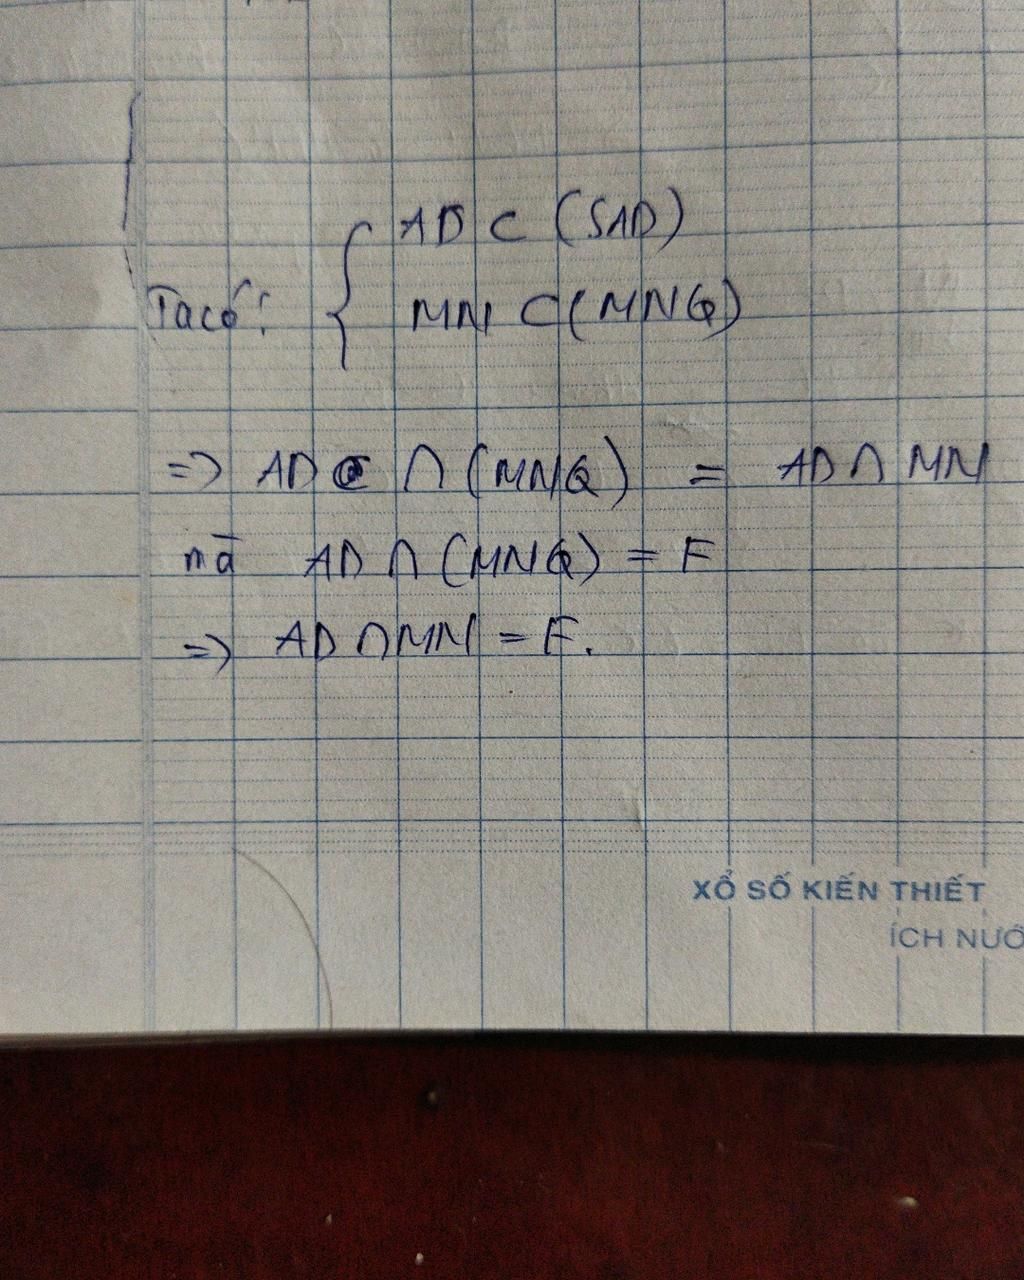 AD ⊂ (SAD)
Ta có: {
MN ⊂ (MNQ)
=> AD ∩ (MNQ) = AD ∩ MN
mà AD ∩ (MNQ) = F
=> AD ∩ MN = F.
XỔ SỐ KIẾN THIẾT
ÍCH NƯỚ